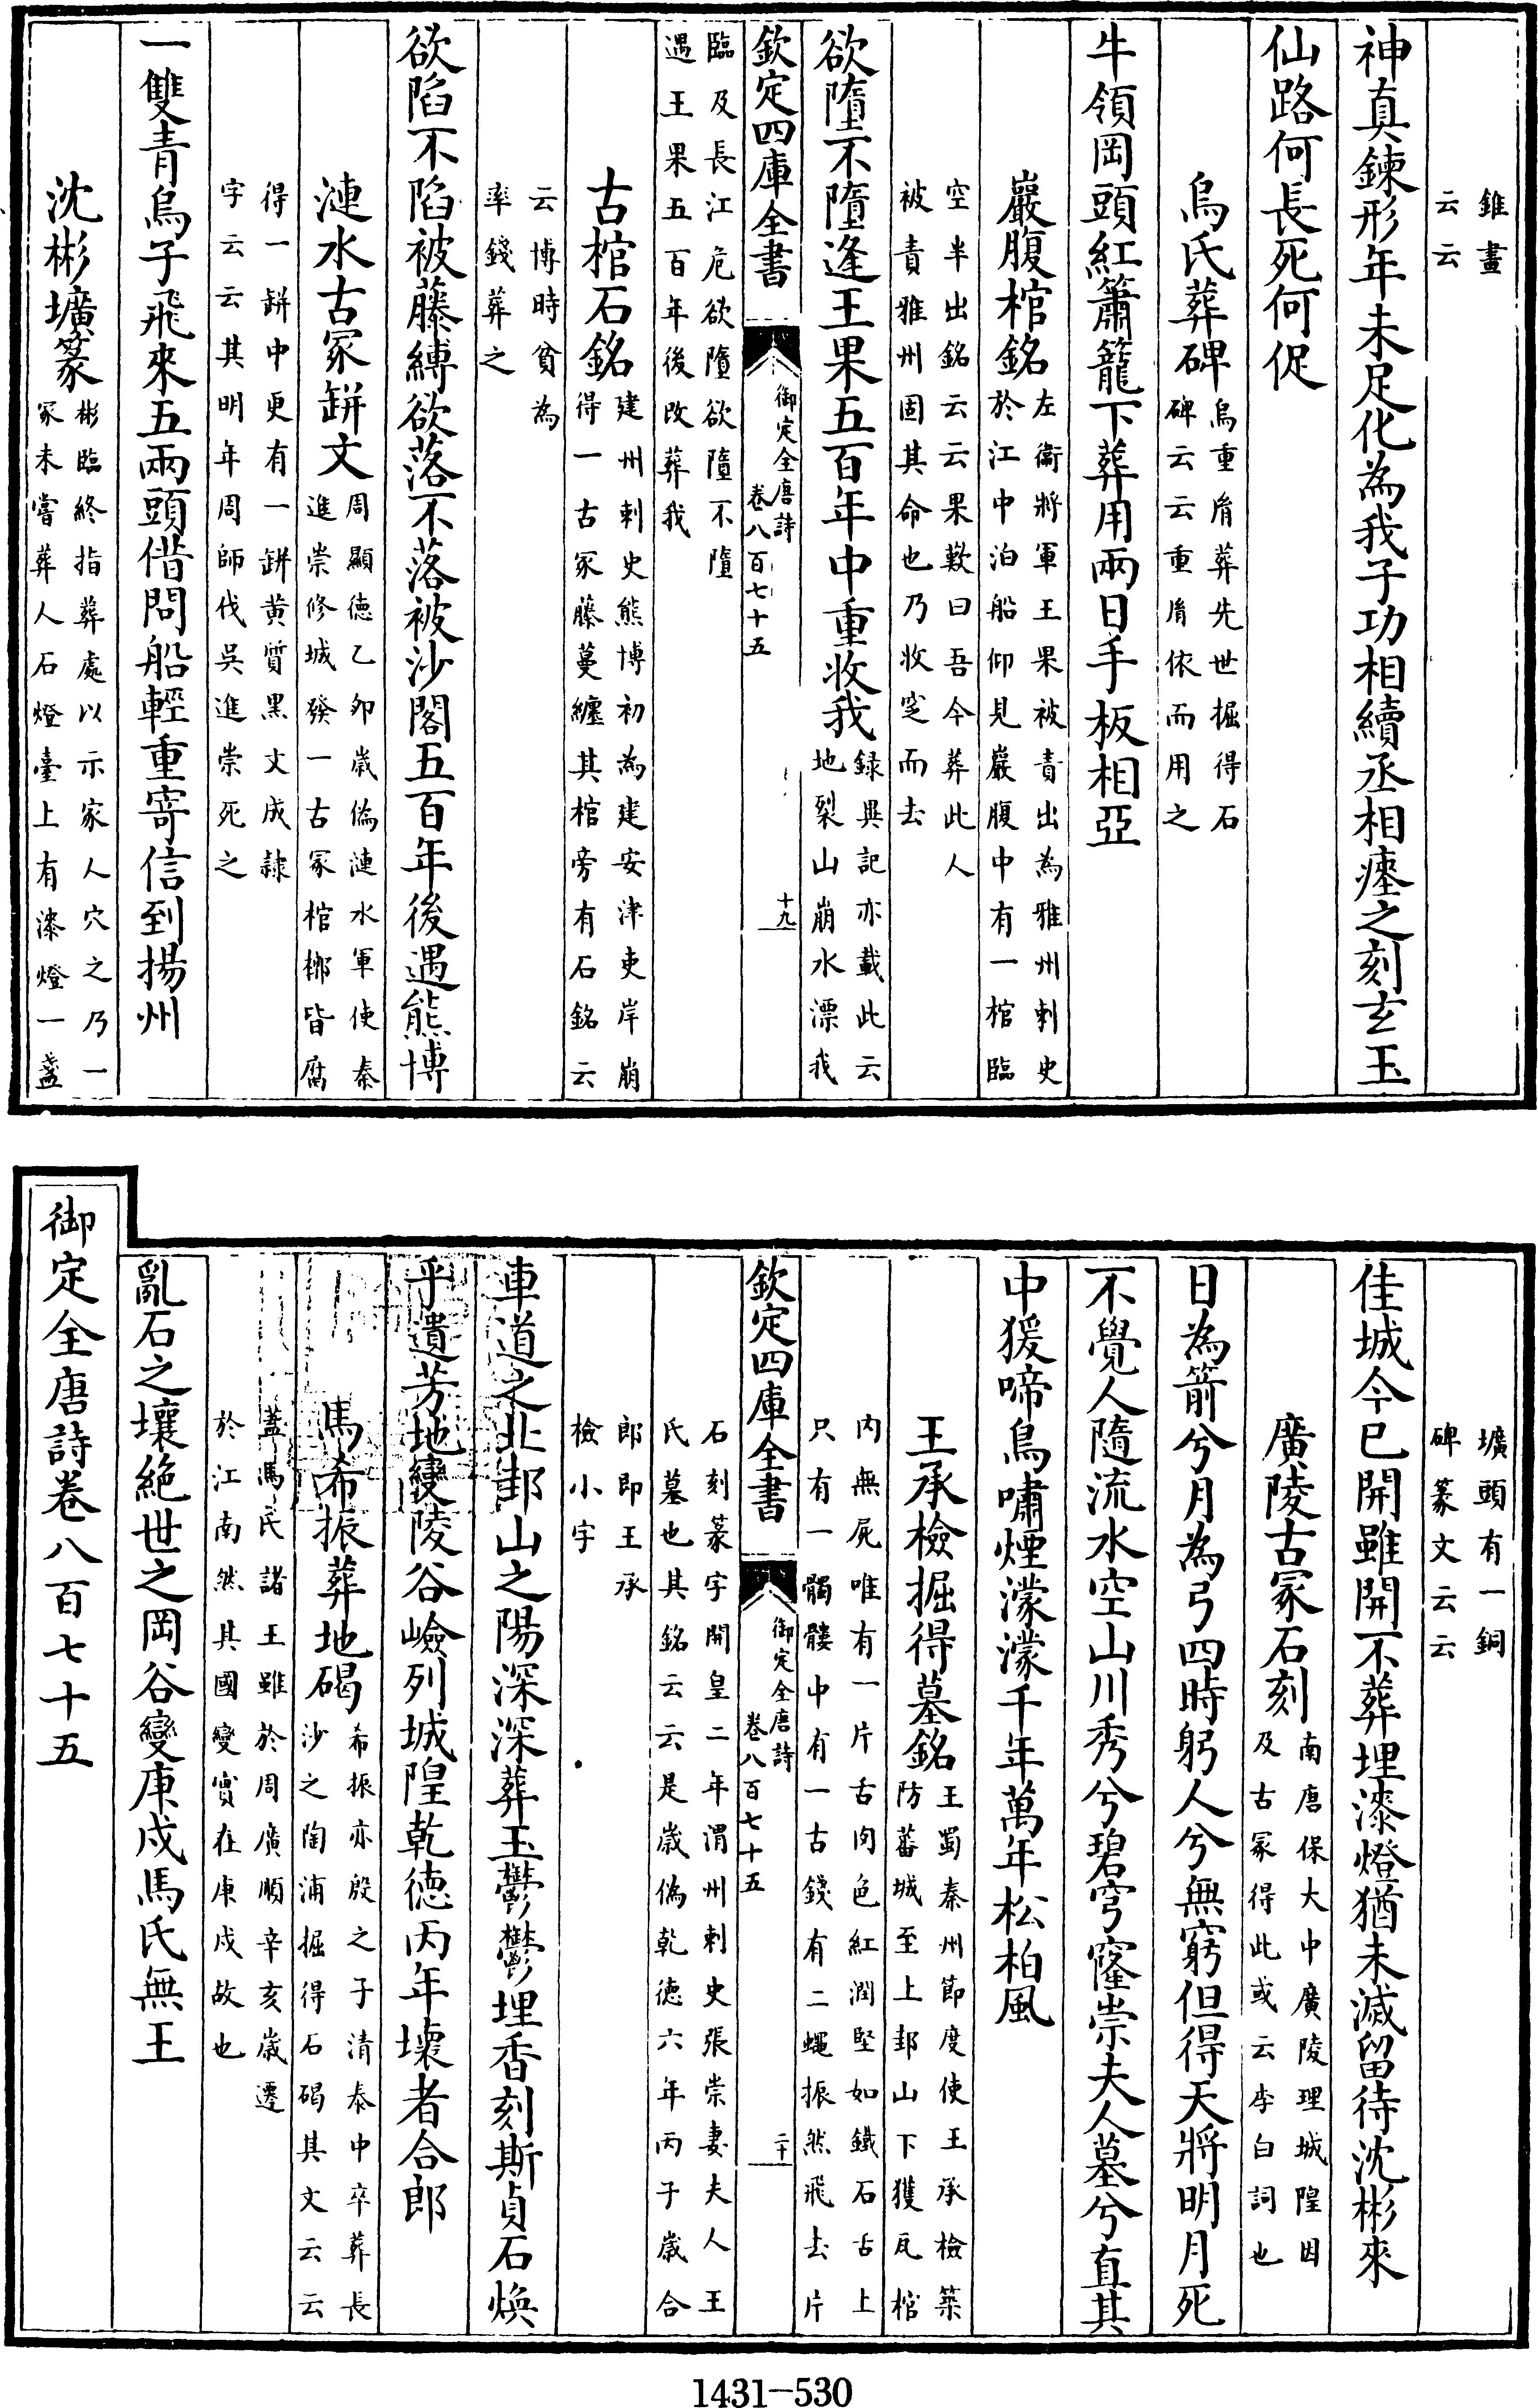 錐畫
云云
神真鍊形年未足化為我子功相續丞相瘞之刻玄玉
仙路何長死何促
烏氏葬碑烏重胤葬先世掘得石
碑云云重胤依而用之
牛領岡頭紅簫籠下葬用兩日手板相亞
巖腹棺銘左衞將軍王果被責出為雅州刺史
於江中泊船仰見巖腹中有一棺臨
空半出銘云云果歎曰吾今葬此人
被責雅州固其命也乃收窆而去
欲墮不墮逢王果五百年中重收我録異記亦載此云
地裂山崩水漂我
欽定四庫全書
御定全唐詩
卷八百七十五
十九
臨及長江危欲墮欲墮不墮
遇王果五百年後改葬我
古棺石銘建州刺史熊博初為建安津吏岸崩
得一古冢藤蔓纏其棺旁有石銘云
云博時貧為
率錢葬之
欲陷不陷被藤縛欲落不落被沙閣五百年後遇熊博
漣水古冢缾文周顯德乙卯歲偽漣水軍使秦
進崇修城發一古冢棺槨皆腐
得一缾中更有一缾黄質黑文成隸
字云云其明年周師伐吳進崇死之
一雙青烏子飛來五兩頭借問船輕重寄信到揚州
沈彬壙篆彬臨終指葬處以示家人穴之乃一
冢未嘗葬人石燈臺上有漆燈一盞
壙頭有一銅
碑篆文云云
佳城今已開雖開不葬埋漆燈猶未滅留待沈彬來
廣陵古冢石刻南唐保大中廣陵理城隍因
及古冢得此或云李白詞也
日為箭兮月為弓四時躬人兮無窮但得天將明月死
不覺人隨流水空山川秀兮碧穹窿崇夫人墓兮直其
中猨啼鳥嘯煙濛濛千年萬年松柏風
王承檢掘得墓銘王蜀秦州節度使王承檢築
防蕃城至上邽山下獲瓦棺
内無屍唯有一片舌肉色紅潤堅如鐵石舌上
只有一髑髏中有一古錢有二蠅振然飛去片
欽定四庫全書
御定全唐詩
卷八百七十五
二十
石刻篆字開皇二年渭州刺史張崇妻夫人王
氏墓也其銘云云是歲偽乾德六年丙子歲合
郎即王承
檢小字
車道之北邽山之陽深深葬玉鬱鬱埋香刻斯貞石煥
乎遺芳地變陵谷嶮列城隍乾德丙年壞者合郎
馬希振葬地碣希振亦殷之子清泰中卒葬長
沙之陶浦掘得石碣其文云云
蓋馬氏諸王雖於周廣順辛亥歲遷
於江南然其國變實在庚戌故也
亂石之壤絶世之岡谷變庚戌馬氏無王
御定全唐詩卷八百七十五
1431-530